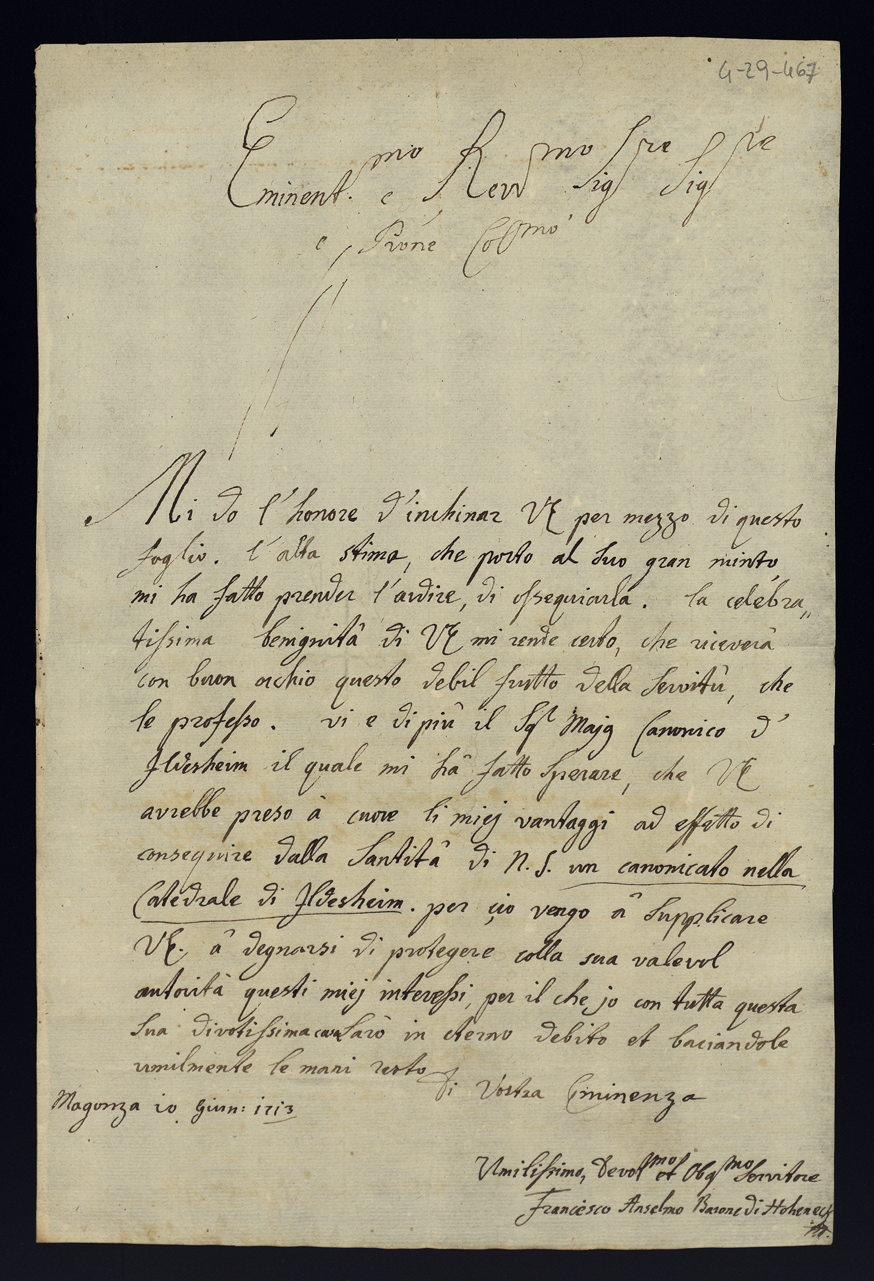 4-29-467
Eminent.mo e Revmo Sigre Sigre
e Prone Colmo
Mi do l'honore d'inchinar VE per mezzo di questo
foglio. l'alta stima, che porto al suo gran mérito
mi ha fatto prender l'ardire, di ossequiarla. la celebra„
tissima benignitâ di VE mi rende certo, che riceverâ
con buon occhio questo debil frutto della servitù, che
le professo. vi e di piû il Sigl Majg Canonico d'
Ildesheim il quale mi hâ fatto sperare, che VE
avrebbe preso â cuore li miej vantaggi ad effetto di
conseguire dalla Santitâ di N. S. un canonicato nella
Catedrale di Ildesheim. per çio vengo â supplicare
VE. â degnarsi di protegere colla sua valevol
autoritâ questi miej interessi, per il che jo con tutta questa
sua divotissima casa sarò in eterno debito et baciandole
umilmente le mani resto
Di Vostra Eminenza
Magonza 10 Giun: 1713
Umilissimo, Devotmo et Obgmo Servitore
Francesco Anselmo Barone di Hoheneck